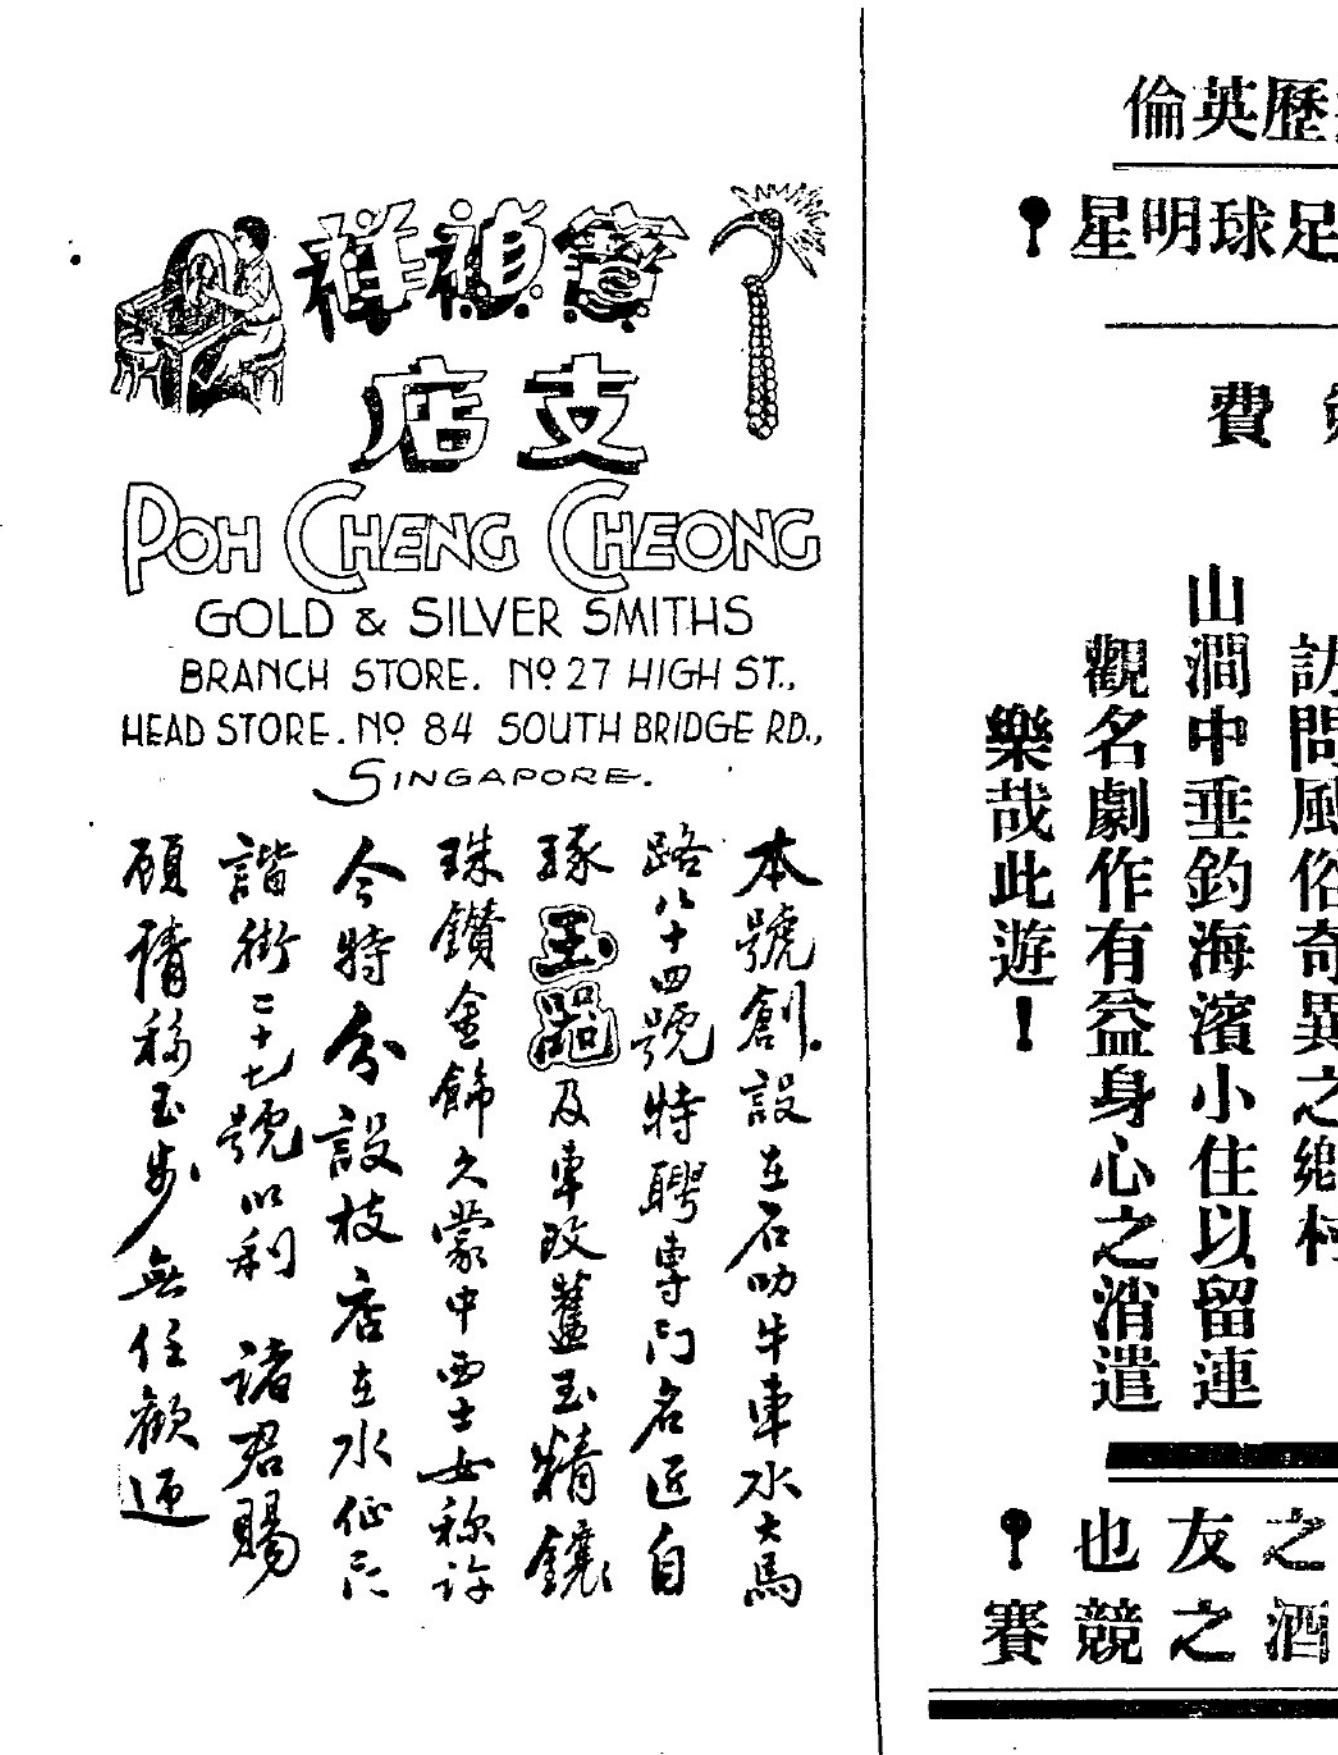 寶禎祥
支店
POH CHENG CHEONG
GOLD & SILVER SMITHS
BRANCH STORE. No 27 HIGH ST.,
HEAD STORE. No 84 SOUTH BRIDGE RD.,
SINGAPORE.
本號創設在石叻牛車水大馬
路八十四號特聘專門名匠自
琢玉器及車改舊玉精鑲
珠鑽金飾久蒙中西士女称許
今特分設枝店在水仙門
諧街二十七號以利 諸君賜
顧請移玉步無任歡迎
歷英倫
足球明星!
費
訪問風俗奇異之鄉村
山澗中垂釣海濱小住以留連
觀名劇作有益身心之消遣
樂哉此遊!
之友也!
酒之競賽